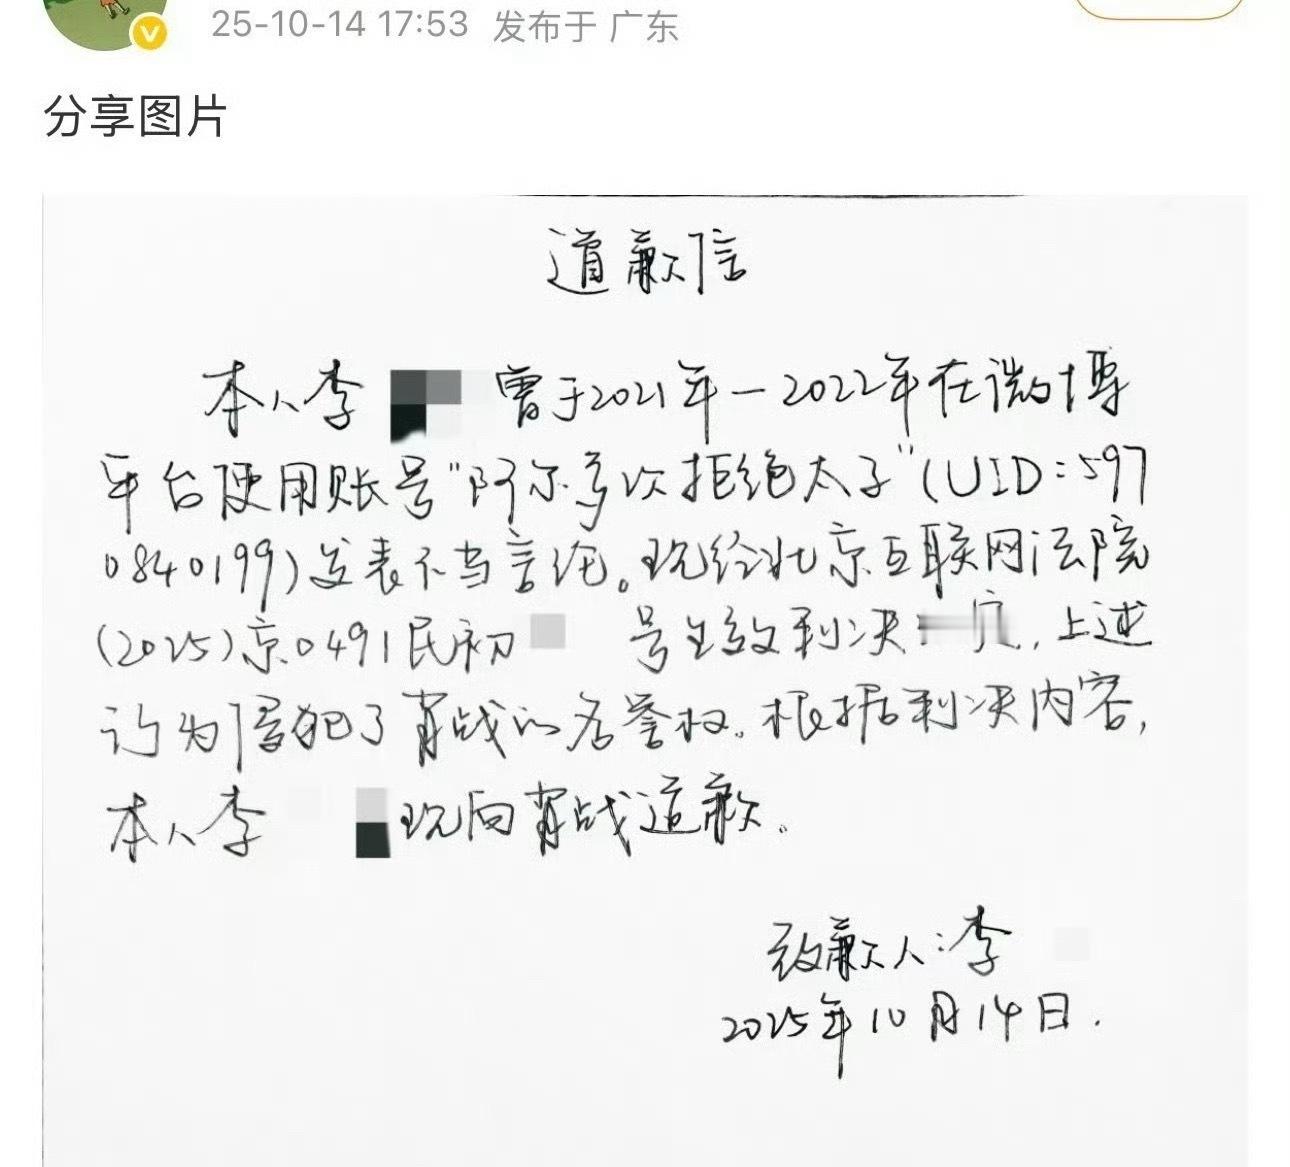 25-10-14 17:53 发布于 广东
分享图片
道歉信
本人李 曾于2021年-2022年在微博
平台使用账号"阿尔多次拒绝太子"(UID:597
0840199)发表不当言论。现经北京互联网法院
(2025)京0491民初 号生效判决 定,上述
行为侵犯了肖战的名誉权。根据判决内容,
本人李 现向肖战道歉。
致歉人:李
2025年10月14日.